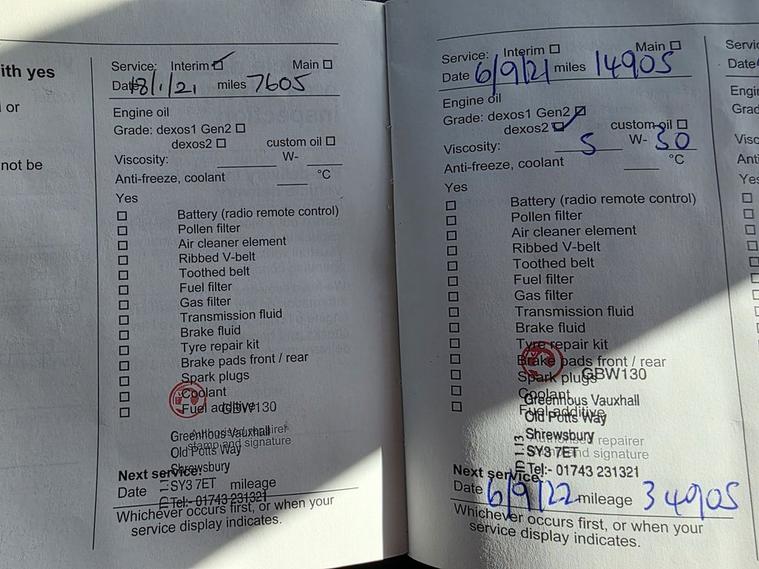 ith yes
l or
not be
Service: Interim Main
Date 18/1/21 miles 7605
Engine oil
Grade: dexos1 Gen2
dexos2 custom oil
Viscosity: W-
Anti-freeze, coolant °C
Yes
Battery (radio remote control)
Pollen filter
Air cleaner element
Ribbed V-belt
Toothed belt
Fuel filter
Gas filter
Transmission fluid
Brake fluid
Tyre repair kit
Brake pads front / rear
Spark plugs
Coolant
Fuel additive GBW130
Authorised repairer
Greenhous Vauxhall
stamp and signature
Old Potts Way
Shrewsbury
Next service:
Date SY3 7ET mileage
Tel:- 01743 231321
Whichever occurs first, or when your
service display indicates.
Service: Interim Main
Date 6/9/21 miles 14905
Engine oil
Grade: dexos1 Gen2
dexos2 custom oil
Viscosity: 5 W- 30
Anti-freeze, coolant °C
Yes
Battery (radio remote control)
Pollen filter
Air cleaner element
Ribbed V-belt
Toothed belt
Fuel filter
Gas filter
Transmission fluid
Brake fluid
Tyre repair kit
Brake pads front / rear
Spark plugs GBW130
Coolant
Greenhous Vauxhall
Fuel additive
Old Potts Way
Shrewsbury
Authorised repairer
SY3 7ET
stamp and signature
Next service:
Tel:- 01743 231321
Date 6/9/22 mileage 34905
Whichever occurs first, or when your
service display indicates.
Servic
Date
Engi
Grad
Visc
Anti
Yes